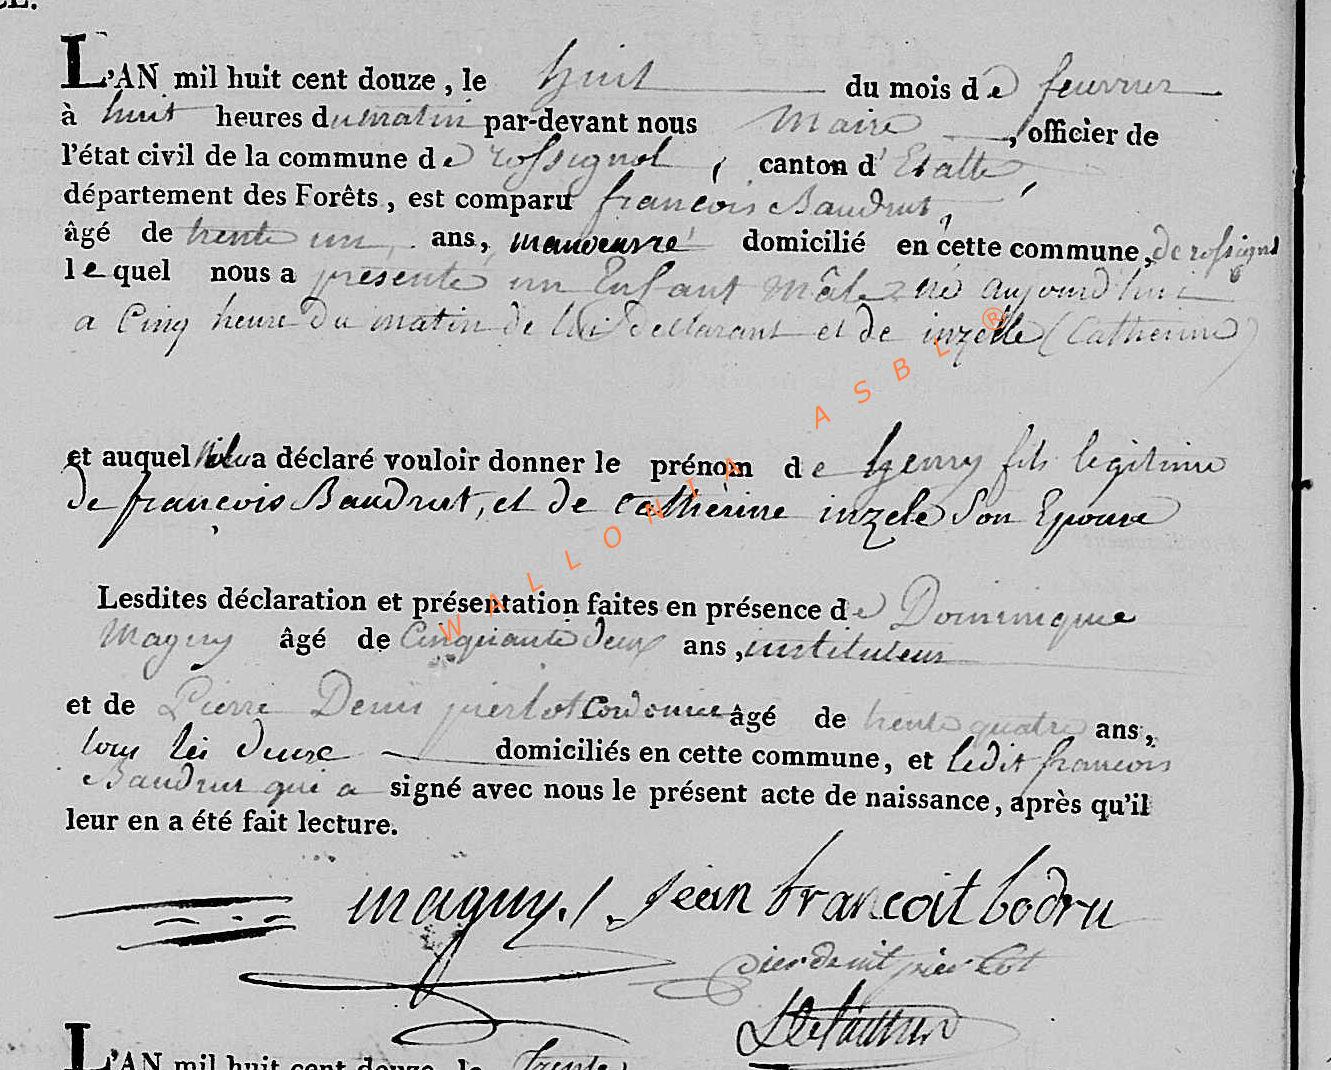 L'AN mil huit cent douze, le huit du mois de feuvrier
à huit heures du matin par-devant nous Maire, officier de
l'état civil de la commune de rossignol, canton d'Etalle,
département des Forêts, est comparu françois Baudrut,
âgé de trente un ans, manoeuvre domicilié en cette commune, de rossignol
lequel nous a présenté un Enfant mâle né aujourd'hui
a Cinq heure Du matin de lui declarant et de inzelle (Catherine)
et auquel il a déclaré vouloir donner le prénom de henry fils legitime
de françois Baudrut, et de Catherine inzele Son Epouse
Lesdites déclaration et présentation faites en présence de Dominique
Maguy âgé de Cinquante deux ans, instituteur
et de Pierre Denis pierlot Cordonnier âgé de trente quatre ans,
tous les deux domiciliés en cette commune, et ledit francois
Baudrut qui a signé avec nous le présent acte de naissance, après qu'il
leur en a été fait lecture.
maguy. Jean francoit bodru
pierdenit pierlot
L'AN mil huit cent douze, le Trente
WALLONIA ASBL ®